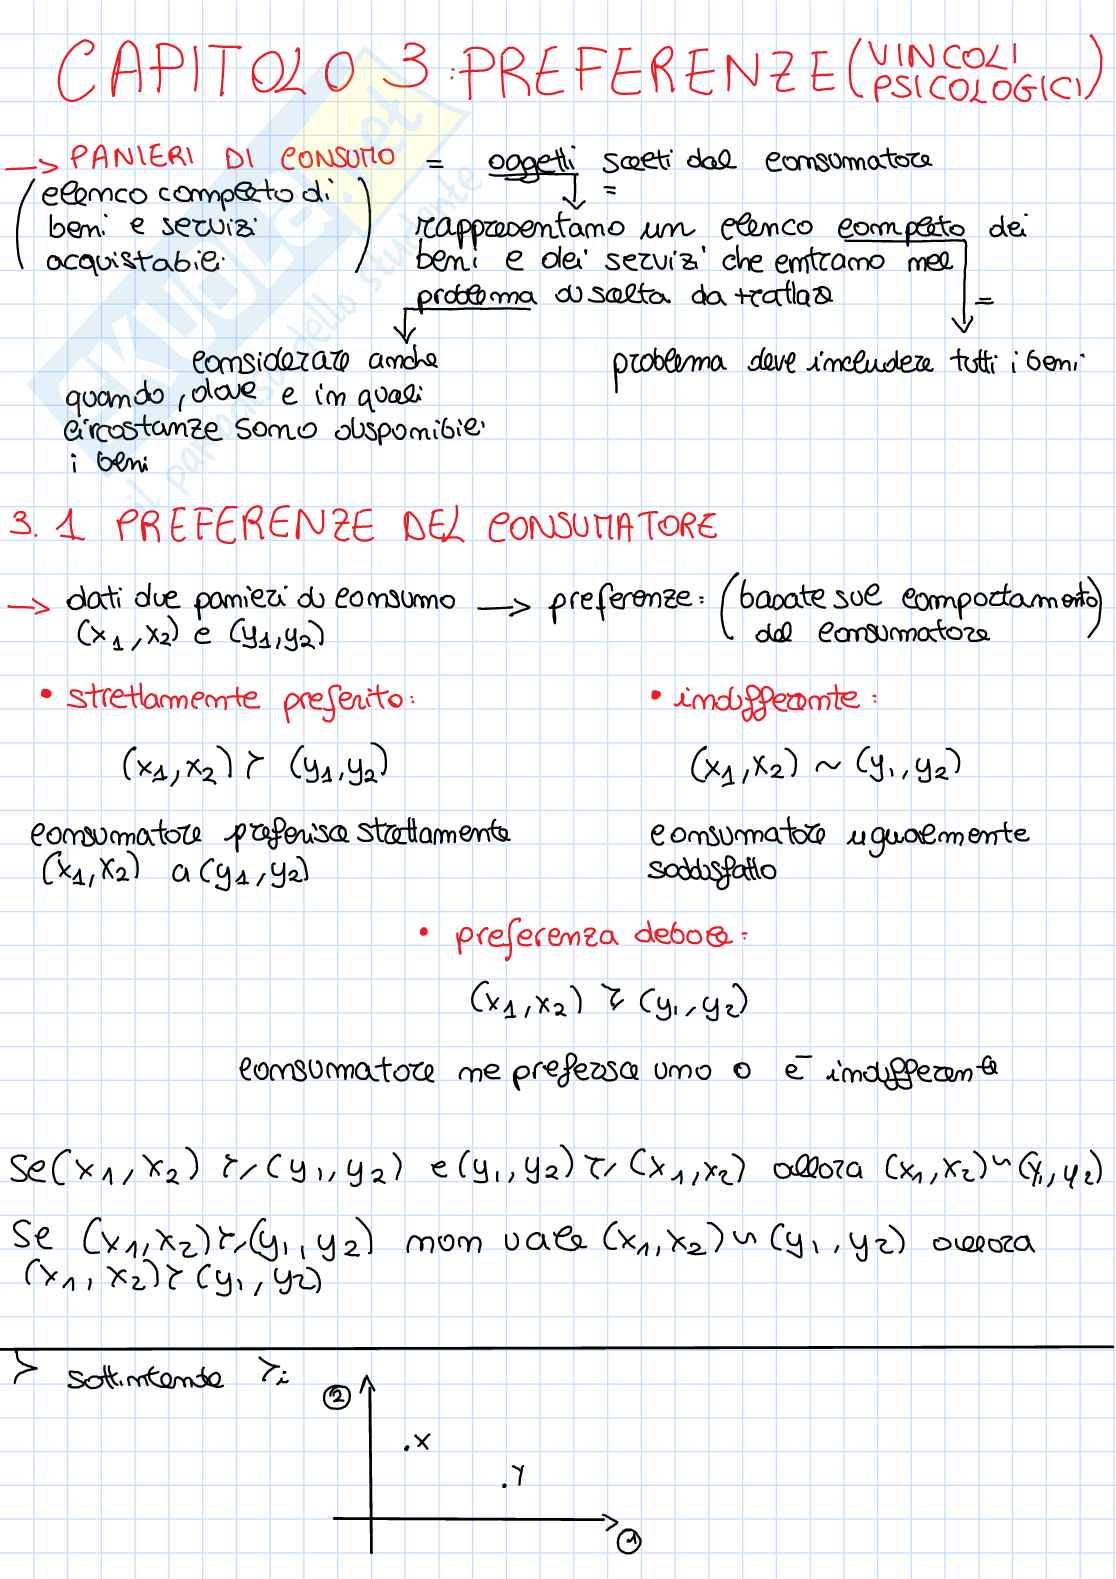 CAPITOLO 3: PREFERENZE (VINCOLI PSICOLOGICI)
→ PANIERI DI CONSUMO = oggetti scelti dal consumatore
(elenco completo di
beni e servizi
acquistabili)
=
rappresentano un elenco completo dei
beni e dei servizi che entrano nel
problema di scelta da trattare
=
considerare anche
quando, dove e in quali
circostanze sono disponibili
i beni
problema deve includere tutti i beni
3.1 PREFERENZE DEL CONSUMATORE
→ dati due panieri di consumo → preferenze: (basate sul comportamento
(x1, x2) e (y1, y2)
del consumatore)
• strettamente preferito:
(x1, x2) ≻ (y1, y2)
consumatore preferisce strettamente
(x1, x2) a (y1, y2)
• indifferente:
(x1, x2) ~ (y1, y2)
consumatore ugualmente
soddisfatto
• preferenza debole:
(x1, x2) ≿ (y1, y2)
consumatore ne preferisce uno o è indifferente
Se (x1, x2) ≿ (y1, y2) e (y1, y2) ≿ (x1, x2) allora (x1, x2) ~ (y1, y2)
Se (x1, x2) ≿ (y1, y2) non vale (x1, x2) ~ (y1, y2) allora
(x1, x2) ≻ (y1, y2)
≻ sottintende ≻i
2
.X
.Y
1
SKUOLA.net
il paradiso dello studente